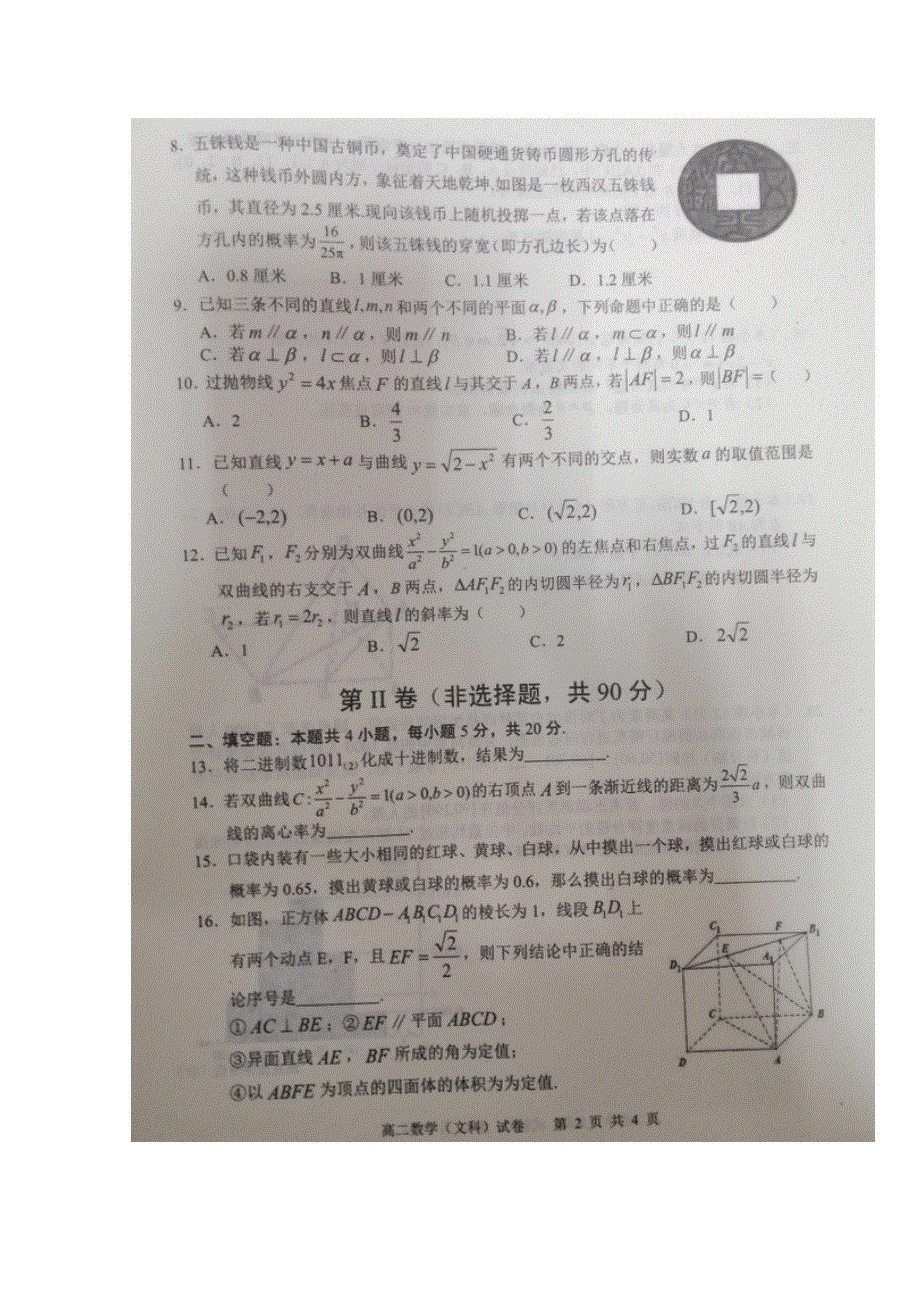 8. 五铢钱是一种中国古铜币，奠定了中国硬通货铸币圆形方孔的传
统，这种钱币外圆内方，象征着天地乾坤.如图是一枚西汉五铢钱
币，其直径为 2.5 厘米.现向该钱币上随机投掷一点，若该点落在
方孔内的概率为 16/25π，则该五铢钱的穿宽(即方孔边长)为（　　）
A．0.8 厘米　B．1 厘米　C．1.1 厘米　D．1.2 厘米
9．已知三条不同的直线 l,m,n 和两个不同的平面 α,β，下列命题中正确的是（　　）
A．若 m∥α，n∥α，则 m∥n　B．若 l∥α，m⊂α，则 l∥m
C．若 α⊥β，l⊂α，则 l⊥β　D．若 l∥α，l⊥β，则 α⊥β
10．过抛物线 y²=4x 焦点 F 的直线 l 与其交于 A，B 两点，若|AF|=2，则|BF|=（　　）
A．2　B．4/3　C．2/3　D．1
11．已知直线 y=x+a 与曲线 y=√(2-x²) 有两个不同的交点，则实数 a 的取值范围是
（　　）
A．(-2,2)　B．(0,2)　C．(√2,2)　D．[√2,2)
12．已知 F₁，F₂ 分别为双曲线 x²/a²-y²/b²=1(a>0,b>0) 的左焦点和右焦点，过 F₂ 的直线 l 与
双曲线的右支交于 A，B 两点，ΔAF₁F₂ 的内切圆半径为 r₁，ΔBF₁F₂ 的内切圆半径为
r₂，若 r₁=2r₂，则直线 l 的斜率为（　　）
A．1　B．√2　C．2　D．2√2
第 II 卷（非选择题，共 90 分）
二、填空题：本题共 4 小题，每小题 5 分，共 20 分.
13．将二进制数1011₍₂₎化成十进制数，结果为________.
14．若双曲线 C:x²/a²-y²/b²=1(a>0,b>0)的右顶点 A 到一条渐近线的距离为 2√2/3 a，则双曲
线的离心率为________.
15．口袋内装有一些大小相同的红球、黄球、白球，从中摸出一个球，摸出红球或白球的
概率为 0.65，摸出黄球或白球的概率为 0.6，那么摸出白球的概率为________.
16．如图，正方体 ABCD-A₁B₁C₁D₁的棱长为 1，线段 B₁D₁ 上
有两个动点 E，F，且 EF=√2/2，则下列结论中正确的结
论序号是________.
①AC⊥BE；②EF∥平面 ABCD；
③异面直线 AE，BF 所成的角为定值；
④以 ABFE 为顶点的四面体的体积为为定值.
C₁ F B₁
E
D₁ A₁
C B
D A
高二数学（文科）试卷　第 2 页 共 4 页